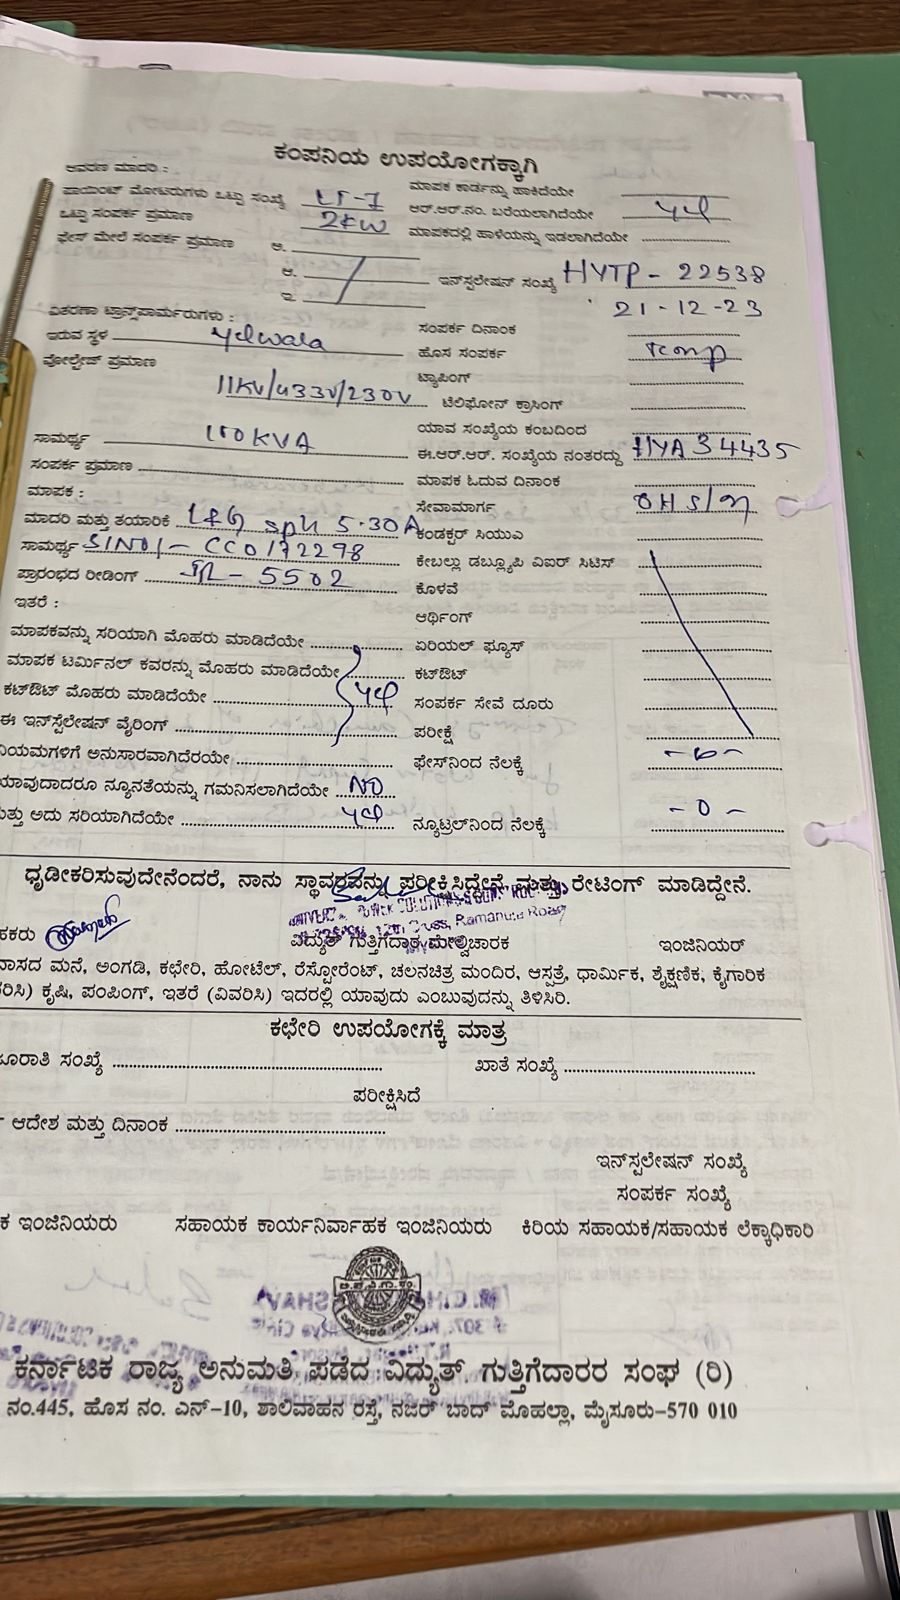 ಕಂಪನಿಯ ಉಪಯೋಗಕ್ಕಾಗಿ
ಆವರಣ ಮಾದರಿ : ಮಾಪಕ ಕಾರ್ಡನ್ನು ಹಾಕಿದೆಯೇ
ಪಾಯಿಂಟ್ ಮೋಟರುಗಳು ಒಟ್ಟು ಸಂಖ್ಯೆ LT-7 ಆರ್.ಆರ್.ನಂ. ಬರೆಯಲಾಗಿದೆಯೇ
ಒಟ್ಟು ಸಂಪರ್ಕ ಪ್ರಮಾಣ 2KW ಮಾಪಕದಲ್ಲಿ ಹಾಳೆಯನ್ನು ಇಡಲಾಗಿದೆಯೇ
ಫೇಸ್ ಮೇಲೆ ಸಂಪರ್ಕ ಪ್ರಮಾಣ ಅ.
ಆ. ಇನ್‌ಸ್ಟಲೇಷನ್ ಸಂಖ್ಯೆ HYTP - 22538
ಇ. 21-12-23
ವಿತರಣಾ ಟ್ರಾನ್ಸ್‌ಪಾರ್ಮರುಗಳು : ಸಂಪರ್ಕ ದಿನಾಂಕ
ಇರುವ ಸ್ಥಳ Yelwala ಹೊಸ ಸಂಪರ್ಕ Temp
ವೋಲ್ಟೇಜ್ ಪ್ರಮಾಣ ಟ್ಯಾಪಿಂಗ್
11KV/433V/230V ಟೆಲಿಫೋನ್ ಕ್ರಾಸಿಂಗ್
ಯಾವ ಸಂಖ್ಯೆಯ ಕಂಬದಿಂದ
ಸಾಮರ್ಥ್ಯ 100KVA ಈ.ಆರ್.ಆರ್. ಸಂಖ್ಯೆಯ ನಂತರದ್ದು HYA34435
ಸಂಪರ್ಕ ಪ್ರಮಾಣ ಮಾಪಕ ಓದುವ ದಿನಾಂಕ
ಮಾಪಕ : ಸೇವಾಮಾರ್ಗ OH S/M
ಮಾದರಿ ಮತ್ತು ತಯಾರಿಕೆ L&G sph 5-30A ಕಂಡಕ್ಟರ್ ಸಿಯುಎ
ಸಾಮರ್ಥ್ಯ S/NO/- CC0172298 ಕೇಬಲ್ಲು ಡಬ್ಲ್ಯೂಪಿ ವಿಐಆರ್ ಸಿಟಿಸ್
ಪ್ರಾರಂಭದ ರೀಡಿಂಗ್ IR - 5502 ಕೊಳವೆ
ಇತರೆ : ಆರ್ಥಿಂಗ್
ಮಾಪಕವನ್ನು ಸರಿಯಾಗಿ ಮೊಹರು ಮಾಡಿದೆಯೇ ಏರಿಯಲ್ ಫ್ಯೂಸ್
ಮಾಪಕ ಟರ್ಮಿನಲ್ ಕವರನ್ನು ಮೊಹರು ಮಾಡಿದೆಯೇ ಕಟ್‌ಔಟ್
ಕಟ್‌ಔಟ್ ಮೊಹರು ಮಾಡಿದೆಯೇ ಸಂಪರ್ಕ ಸೇವೆ ದೂರು
ಈ ಇನ್‌ಸ್ಟೆಲೇಷನ್ ವೈರಿಂಗ್ ಪರೀಕ್ಷೆ
ನಿಯಮಗಳಿಗೆ ಅನುಸಾರವಾಗಿದೆರಯೇ ಫೇಸ್‌ನಿಂದ ನೆಲಕ್ಕೆ -0-
ಯಾವುದಾದರೂ ನ್ಯೂನತೆಯನ್ನು ಗಮನಿಸಲಾಗಿದೆಯೇ NO
ಮತ್ತು ಅದು ಸರಿಯಾಗಿದೆಯೇ ನ್ಯೂಟ್ರಲ್‌ನಿಂದ ನೆಲಕ್ಕೆ -0-
ಧೃಡೀಕರಿಸುವುದೇನೆಂದರೆ, ನಾನು ಸ್ಥಾವರವನ್ನು ಪರೀಕ್ಷಿಸಿದ್ದೇನೆ ಮತ್ತು ರೇಟಿಂಗ್ ಮಾಡಿದ್ದೇನೆ.
ವಿದ್ಯುತ್ ಗುತ್ತಿಗೆದಾರ ಮೇಲ್ವಿಚಾರಕ ಇಂಜಿನಿಯರ್
ವಾಸದ ಮನೆ, ಅಂಗಡಿ, ಕಛೇರಿ, ಹೋಟೆಲ್, ರೆಸ್ಟೋರೆಂಟ್, ಚಲನಚಿತ್ರ ಮಂದಿರ, ಆಸ್ಪತ್ರೆ, ಧಾರ್ಮಿಕ, ಶೈಕ್ಷಣಿಕ, ಕೈಗಾರಿಕ
ಕೃಷಿ, ಪಂಪಿಂಗ್, ಇತರೆ (ವಿವರಿಸಿ) ಇದರಲ್ಲಿ ಯಾವುದು ಎಂಬುವುದನ್ನು ತಿಳಿಸಿರಿ.
ಕಛೇರಿ ಉಪಯೋಗಕ್ಕೆ ಮಾತ್ರ
ಸಂಖ್ಯೆ ಖಾತೆ ಸಂಖ್ಯೆ
ಪರೀಕ್ಷಿಸಿದೆ
ಆದೇಶ ಮತ್ತು ದಿನಾಂಕ
ಇನ್‌ಸ್ಟಲೇಷನ್ ಸಂಖ್ಯೆ
ಸಂಪರ್ಕ ಸಂಖ್ಯೆ
ಇಂಜಿನಿಯರು ಸಹಾಯಕ ಕಾರ್ಯನಿರ್ವಾಹಕ ಇಂಜಿನಿಯರು ಕಿರಿಯ ಸಹಾಯಕ/ಸಹಾಯಕ ಲೆಕ್ಕಾಧಿಕಾರಿ
ಕರ್ನಾಟಕ ರಾಜ್ಯ ಅನುಮತಿ ಪಡೆದ ವಿದ್ಯುತ್ ಗುತ್ತಿಗೆದಾರರ ಸಂಘ (ರಿ)
ನಂ.445, ಹೊಸ ನಂ. ಎನ್-10, ಶಾಲಿವಾಹನ ರಸ್ತೆ, ನಜರ್ ಬಾದ್ ಮೊಹಲ್ಲಾ, ಮೈಸೂರು-570 010